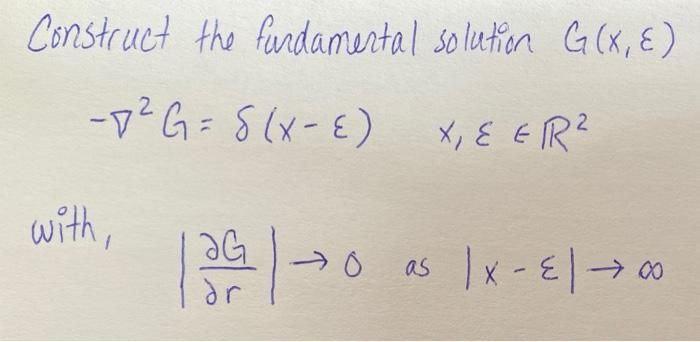 Construct the fundamental solution G(x, ε)
-∇² G = δ(x - ε) x, ε ∈ ℝ²
with, |∂G/∂r| → 0 as |x - ε| → ∞